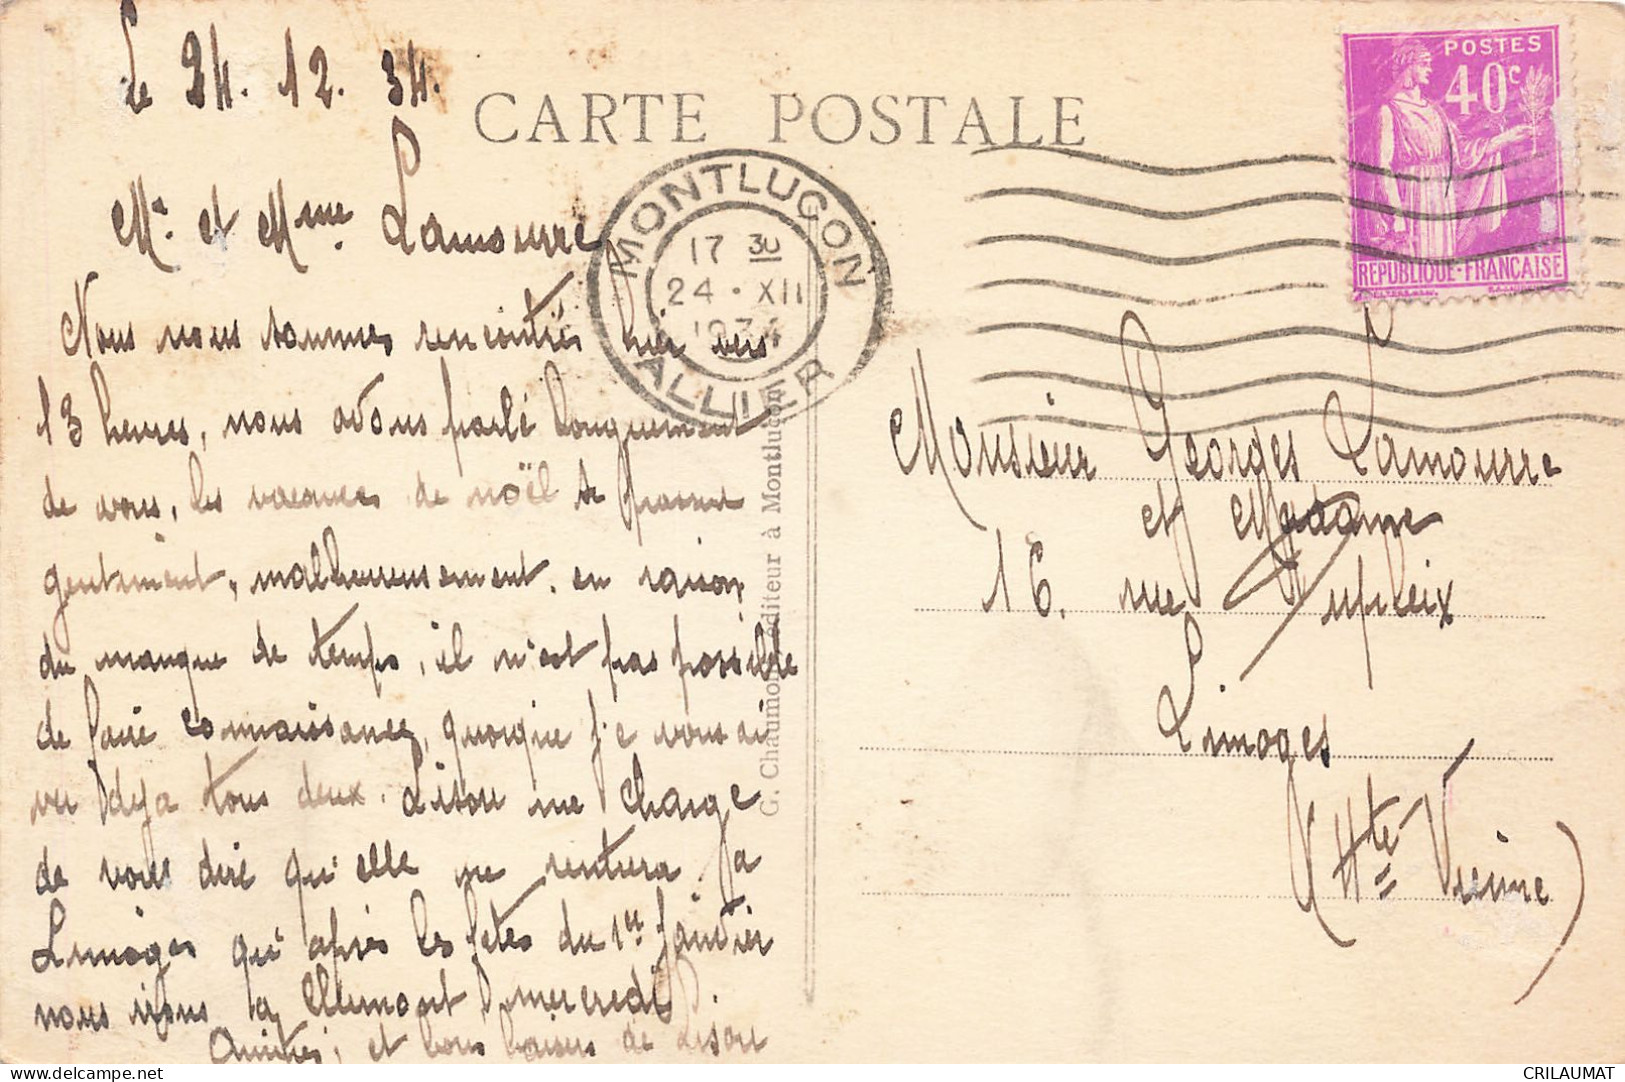 le 24. 12. 34.
CARTE POSTALE
POSTES
40c
REPUBLIQUE·FRANCAISE
MONTLUCON
17 30
24 · XII
1934
ALLIER
Mr. et Mme Lamourre
Nous nous sommes rencontrés hier vers
13 heures, nous avons parlé longuement
de vous, les vacances de noël se passent
gentiment, malheureusement, en raison
du manque de temps, il n'est pas possible
de faire connaissance, quoique je vous ai
vu déja tous deux. Lison me charge
de vous dire qu'elle ne rentrera à
Limoges qu'après les fêtes du 1er Janvier
nous irons à Clermont mercredi.
Amitiés, et bons baisers de Lison
G. Chaumont éditeur à Montluçon
Monsieur Georges Lamourre
et Madame
16, rue Dupleix
Limoges
(Hte Vienne)
CRILAUMAT